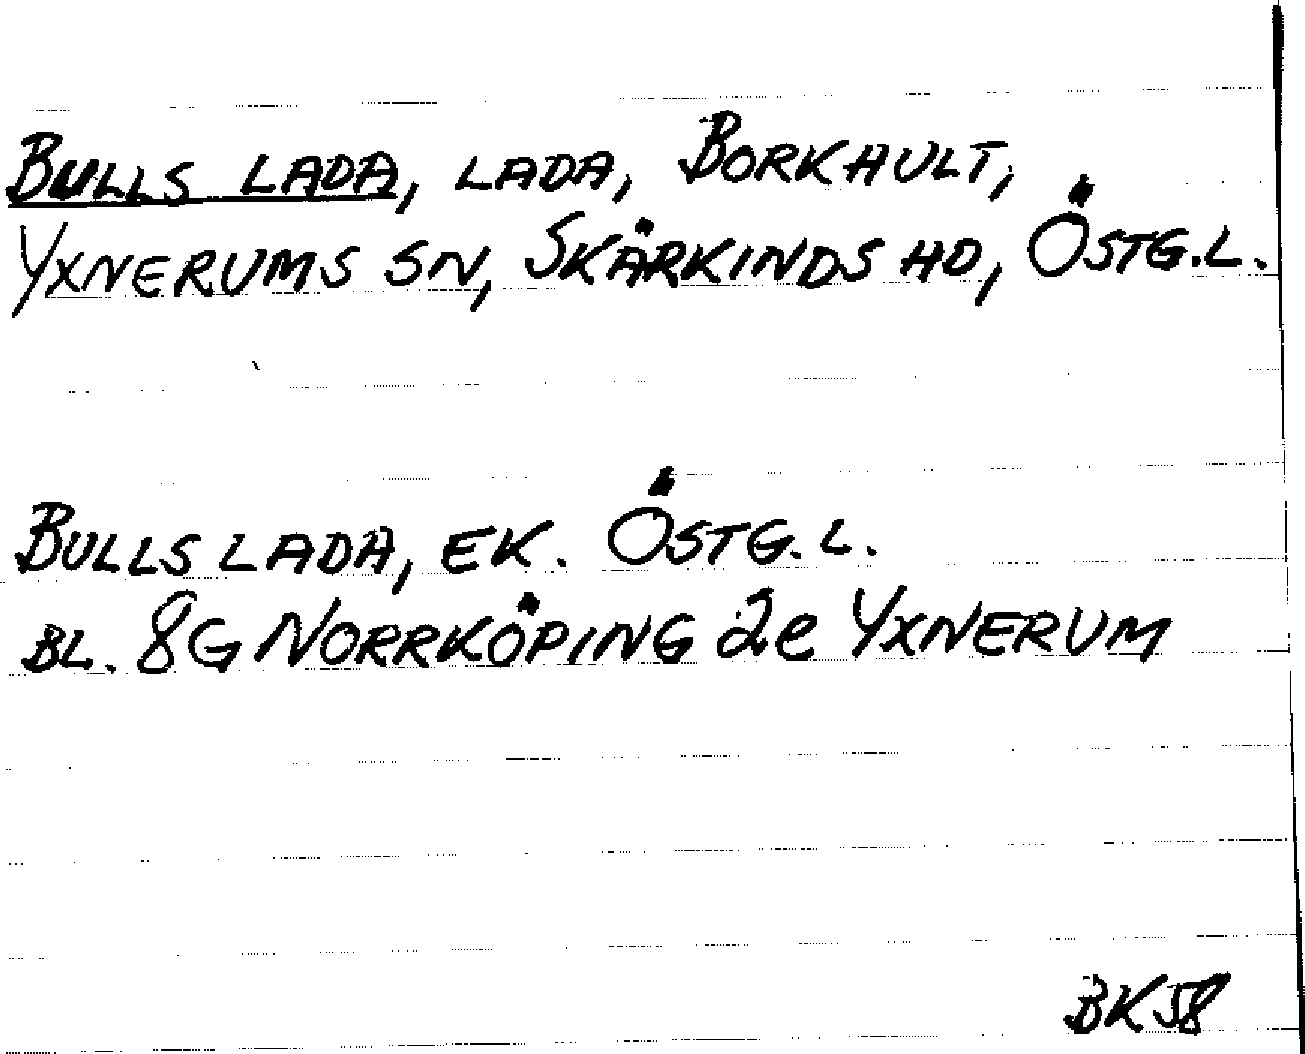 BULLS LADA, LADA, BORKHULT,
YXNERUMS SN, SKÄRKINDS HD, ÖSTG.L.
BULLS LADA, EK. ÖSTG. L.
BL. 8G NORRKÖPING 2e YXNERUM
BK58